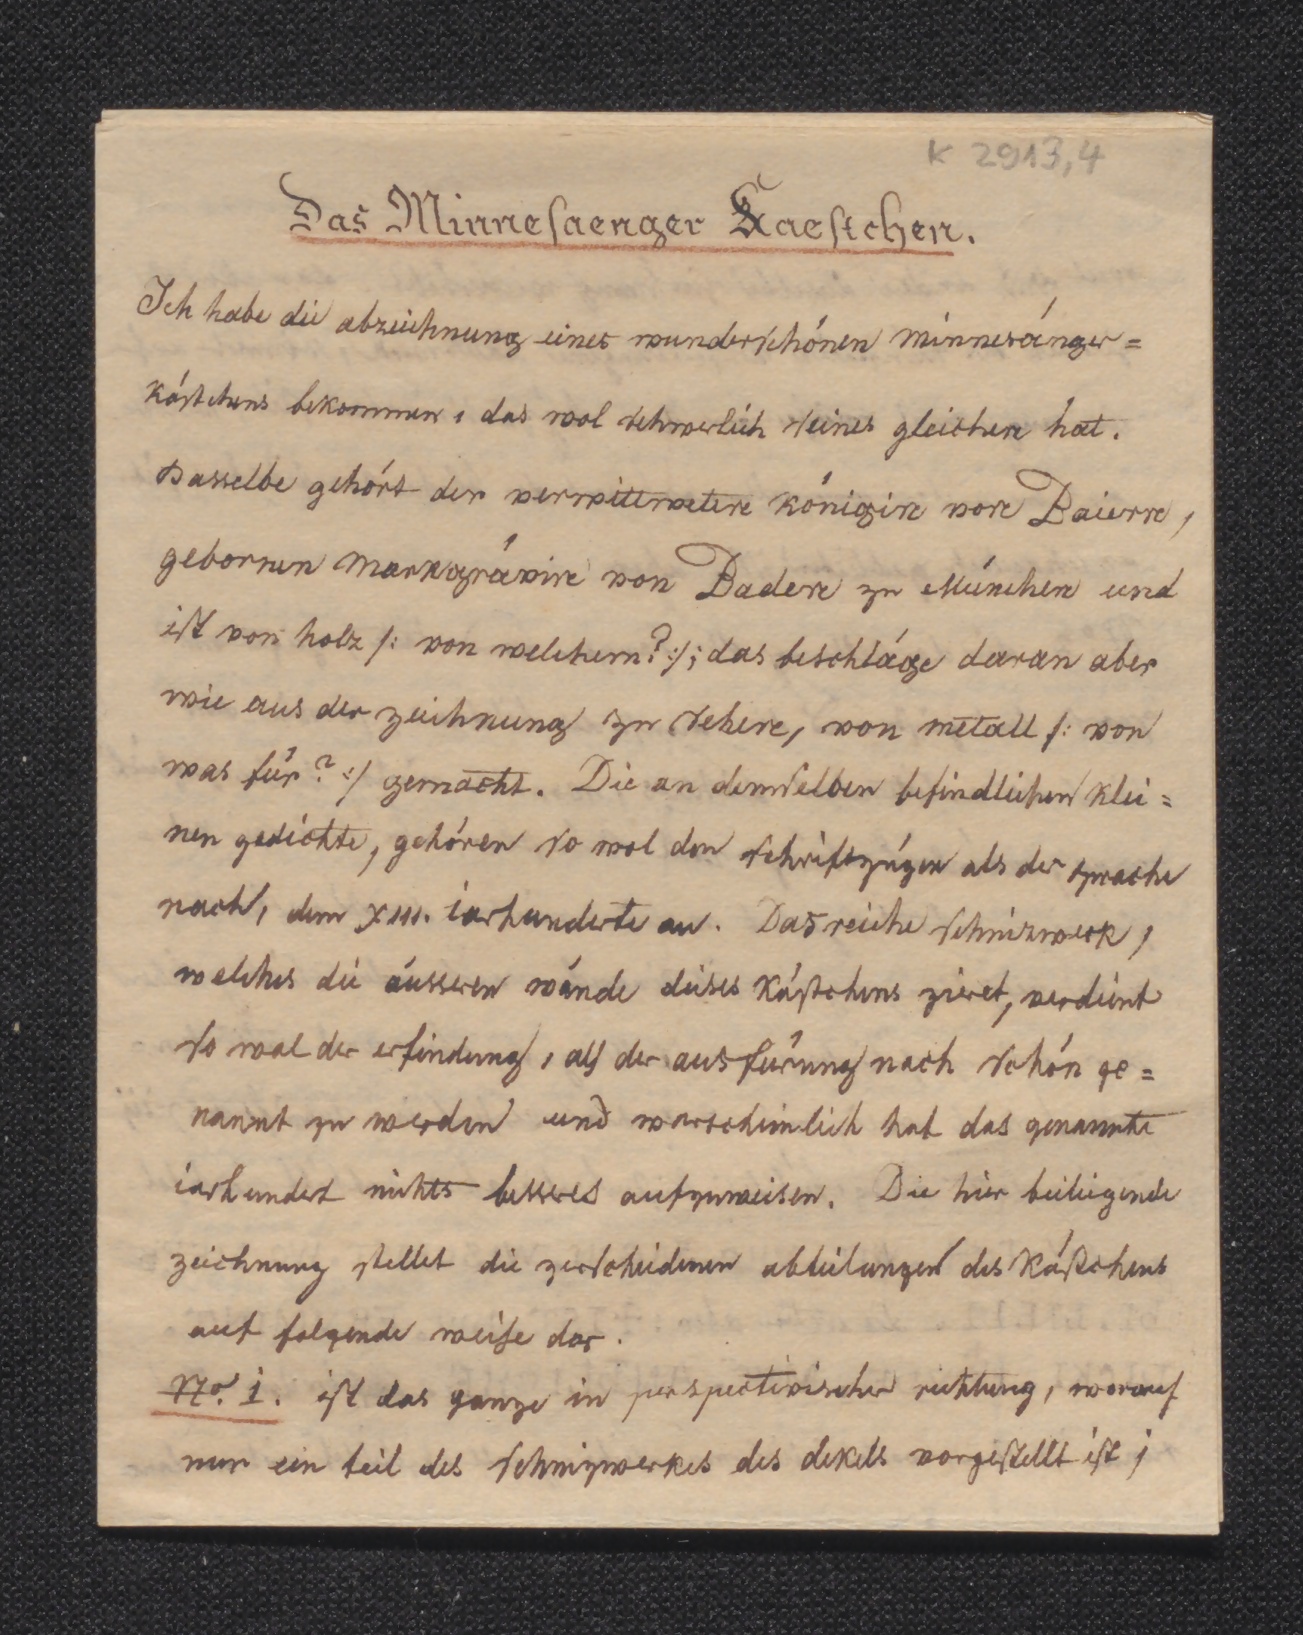 K 2913,4
Das Minnesaenger Kaestchen.
Ich habe die abzeichnung eines wunderschönen minnesänger=
kästchens bekommen, das wol schwerlich seines gleichen hat.
Dasselbe gehört der verwittweten königin von Baiern,
gebornen markgrävin von Baden zu München und
ist von holz /: von welchem? :/; das beschläge daran aber
wie aus der zeichnung zu sehen, von metall /: von
was für? :/ gemacht. Die an demselben befindlichen klei=
nen gedichte, gehören so wol den schriftzügen als der sprache
nach, dem XIII. iarhunderte an. Das reiche schnizwerk,
welches die äusseren wände dieses kästchens zieret, verdient
so wol der erfindung, als der ausfürung nach schön ge=
nannt zu werden und warscheinlich hat das genannte
iarhundert nichts besseres aufzuweisen. Die hier beiliegende
zeichnung stellet die verscheidenen abteilungen des kästchens
auf folgende weise dar.
No. 1. ist das ganze in perspectivischer richtung, worauf
nur ein teil des schnizwerkes des dekels vorgestellt ist;